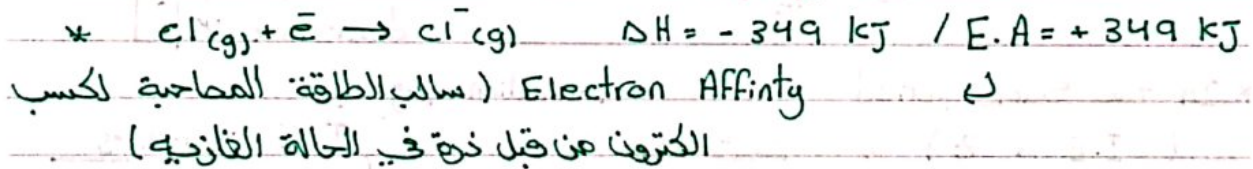 * Cl(g) + e⁻ → Cl⁻(g) ΔH = - 349 kJ / E.A = + 349 kJ
↵ Electron Affinty (سالب الطاقة المصاحبة لكسب
الكترون من قبل ذرة في الحالة الغازيه)